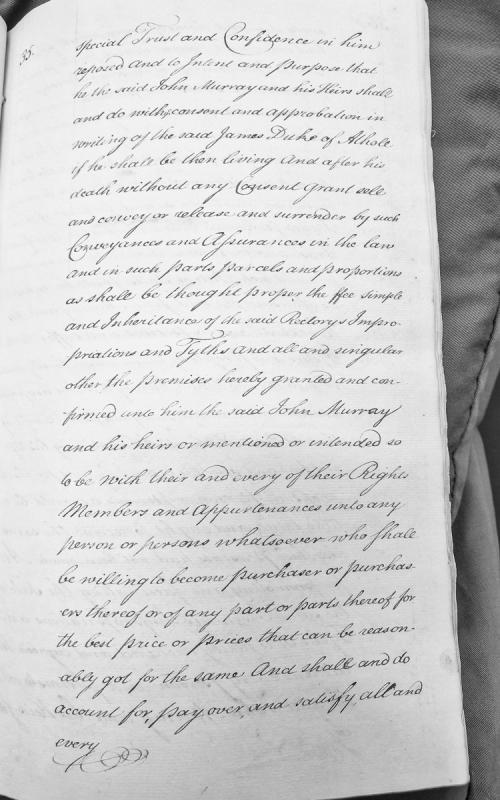 35.
special Trust and Confidence in him
reposed and to Intent and purpose that
he the said John Murray and his Heirs shall
and do with consent and approbation in
writing of the said James Duke of Athole
if he shall be then living And after his
death without any Consent Grant sell
and convey or release and surrender by such
Conveyances and Assurances in the law
and in such parts parcels and proportions
as shall be thought proper the ffee simple
and Inheritance of the said Rectorys Impro-
priations and Tyths And all and singular
other the premises hereby granted and con-
firmed unto him the said John Murray
and his heirs or mentioned or intended so
to be with their and every of their Rights
Members and Appurtenances unto any
person or persons whatsoever who shall
be willing to become purchaser or purchas-
ers thereof or of any part or parts thereof for
the best price or prices that can be reason-
ably got for the same And shall and do
account for, pay over and satisfy all and
every